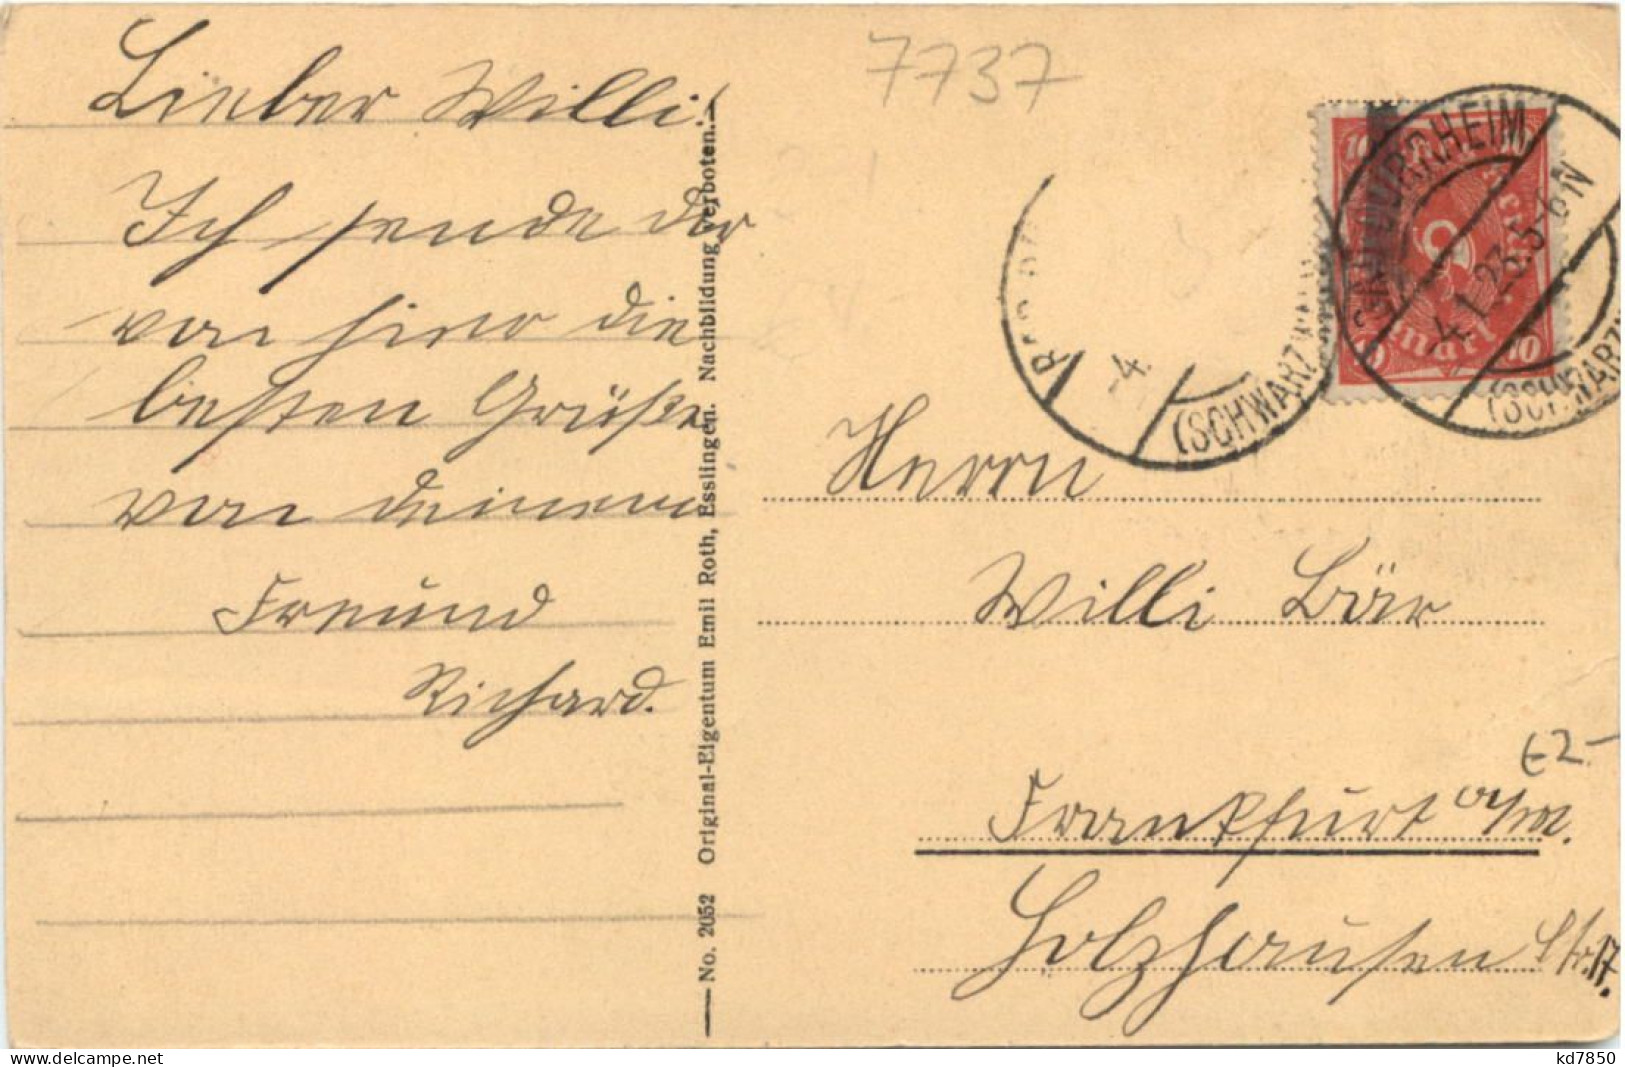 Lieber Willi!
Ich sende dir
von hier die
besten Grüße
von deinem
Freund
Richard.
No. 2052 Original-Eigentum Emil Roth, Esslingen. Nachbildung verboten.
7737
BAD DÜRRHEIM
-4.1.23.5-6N
(SCHWARZW
-4.
(SCHWARZW
10 10
10
Herrn
Willi Bär
€2-
Frankfurt a/M.
Holzhausen Str. 17.
delcampe.net
kd7850